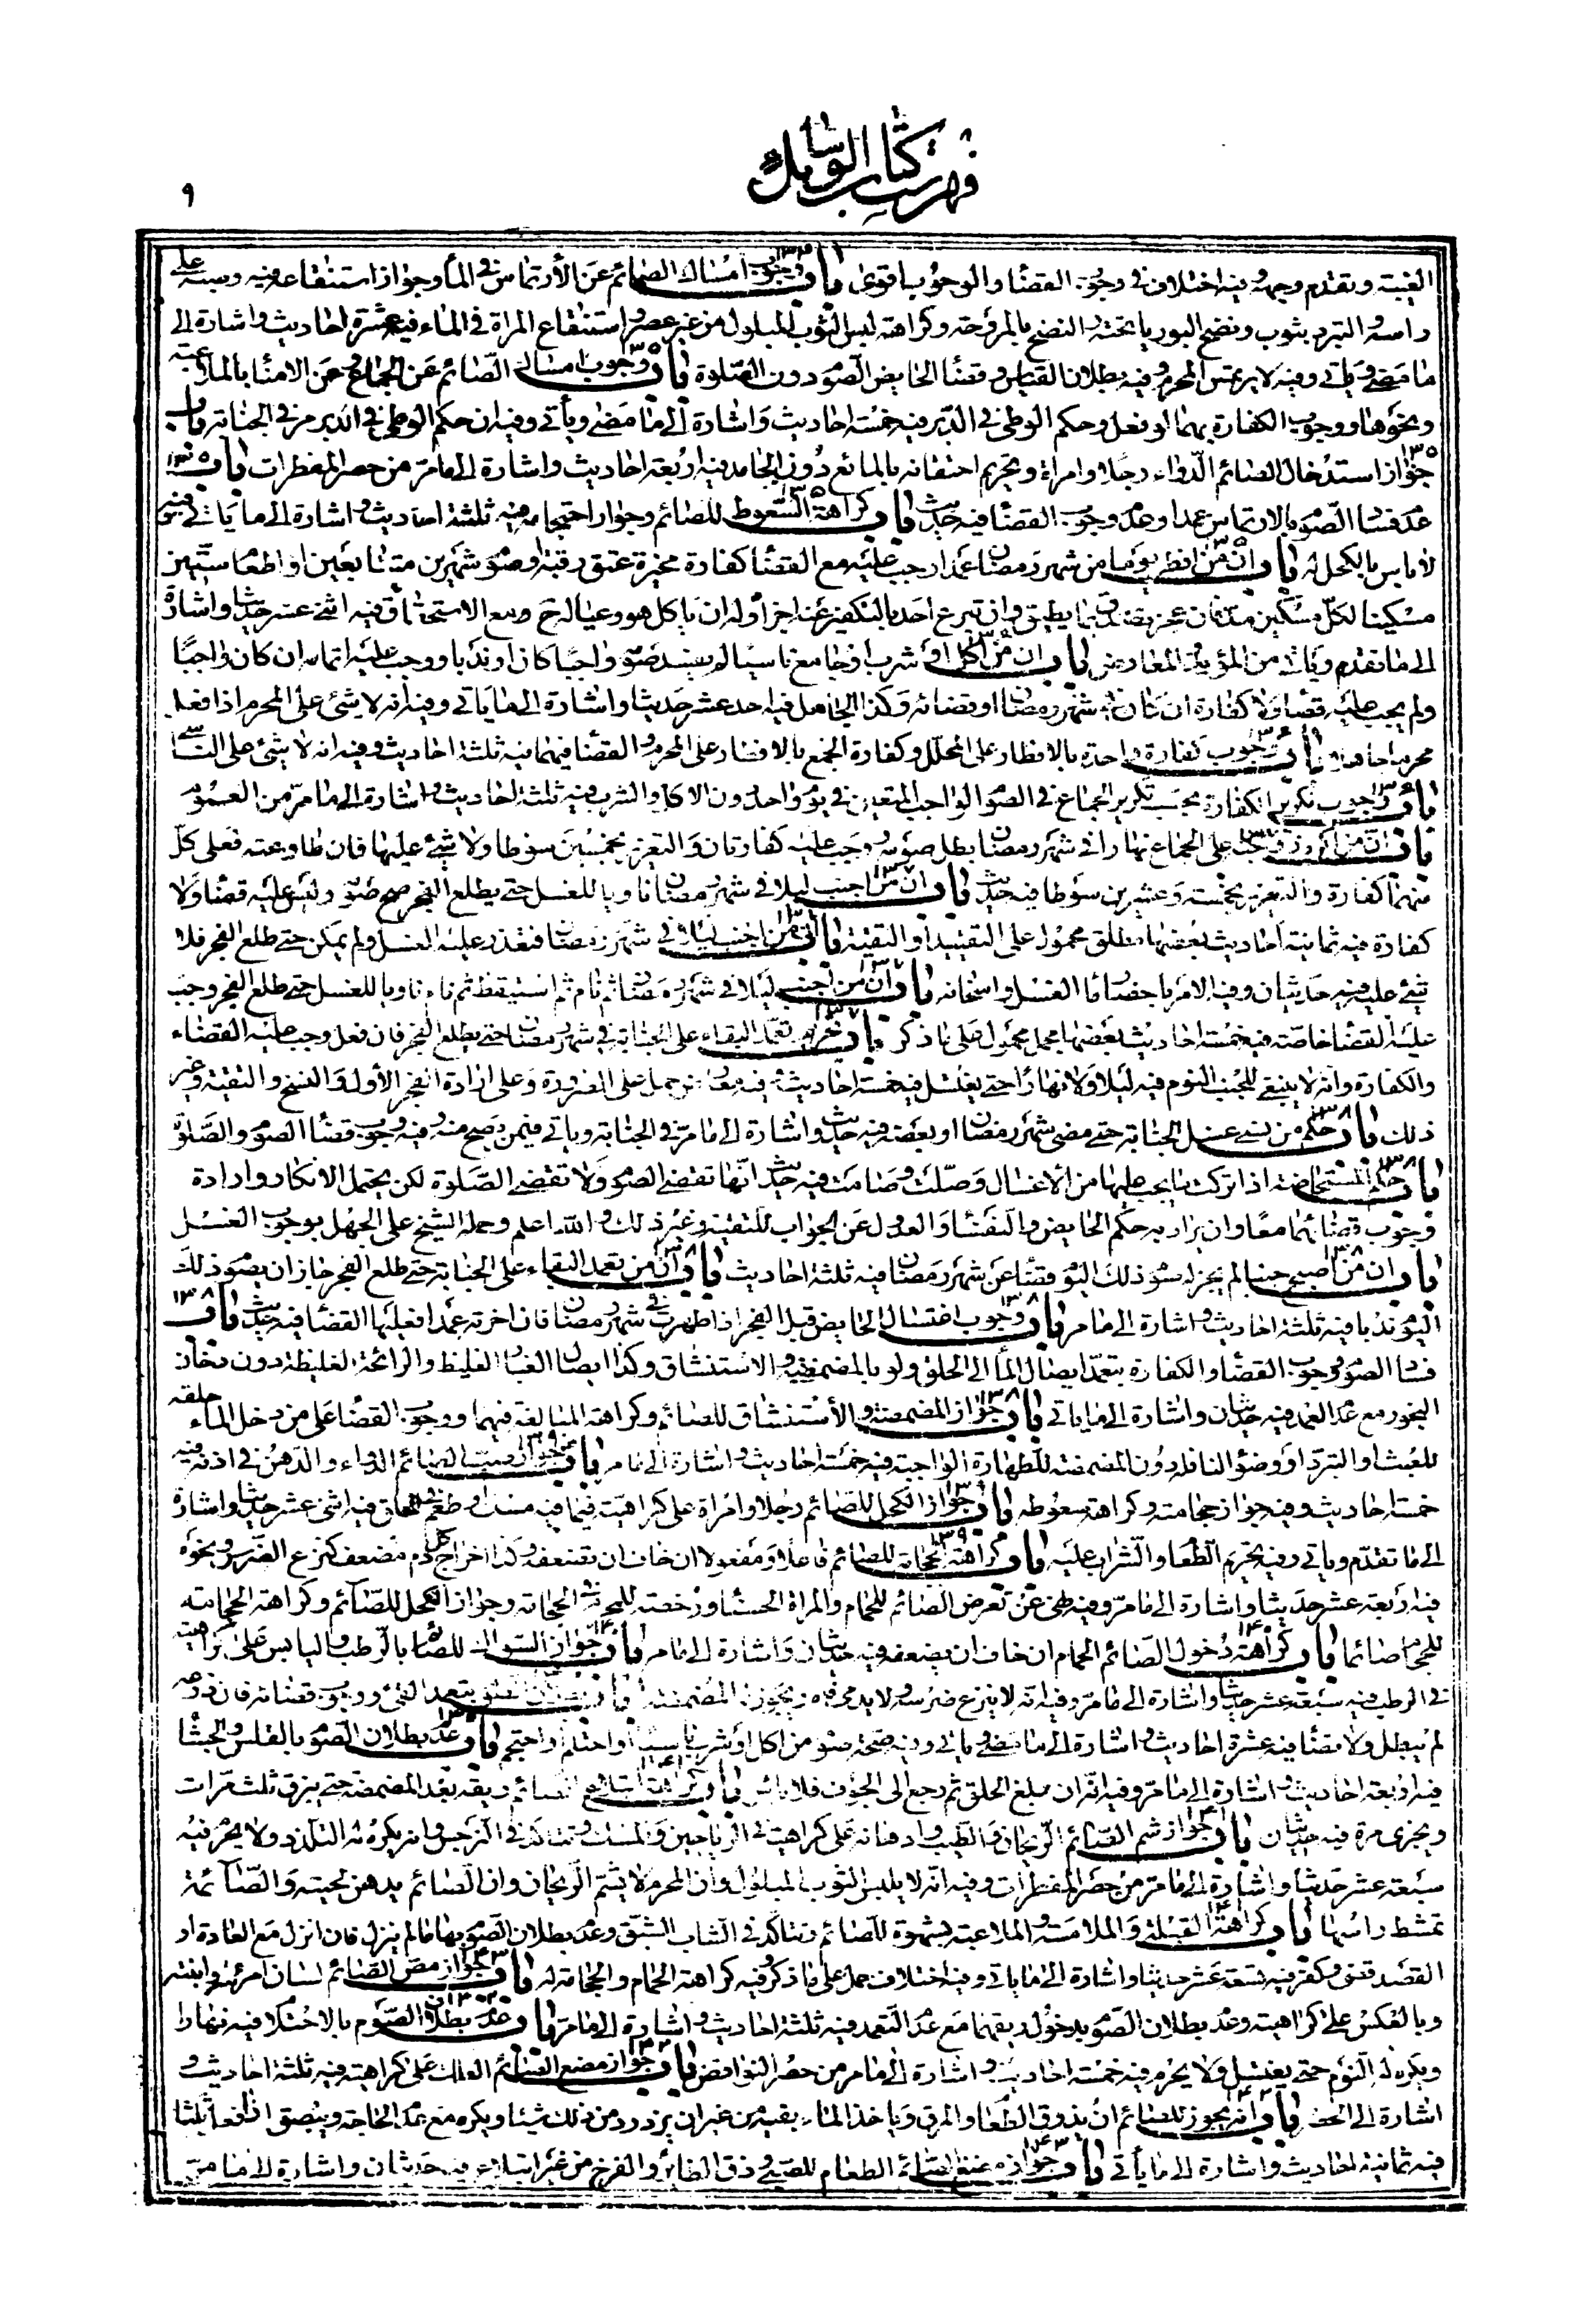 فهرست كتاب الوسائل
٩
الغيبة وتقدم وجهه وفيه اختلاف في وجوب القضاء والوجوب اقوى باب وجوب امساك الصائم عن الارتماس في الماء وجواز استنقاعه فيه وصبه على
راسه والتبرد بثوب ونضح البوريا تحته والنضح بالمروحة وكراهة لبس الثوب المبلول من غير عصر واستنقاع المراة في الماء فيه عشرة احاديث واشارة الى
ما مضى وياتي وفيه لا يرتمس المحرم وفيه بطلان القياس وقضاء الحايض الصوم دون الصلوة باب وجوب امساك الصائم عن الجماع وعن الامناء بالملاعبة
ونحوها ووجوب الكفارة بهما لو فعل وحكم الوطى في الدبر فيه خمسة احاديث واشارة الى ما مضى وياتي وفيه ان حكم الوطى في الدبر مر في الجنابة باب
جواز استدخال الصائم الدواء رجلا او امراة وتحريم احتقانه بالمائع دون الجامد فيه اربعة احاديث واشارة الى ما مر من حصر المفطرات باب ١٣٥
عدم فساد الصوم بالارتماس عمدا وعدم وجوب القضاء فيه حديث باب كراهة السعوط للصائم وجواز احتجامه فيه ثلثة احاديث واشارة الى ما ياتي
لا باس بالكحل له باب ان من افطر يوما من شهر رمضان عمدا وجب عليه مع القضاء كفارة مخيرة عتق رقبة او صوم شهرين متتابعين او اطعام ستين
مسكينا لكل مسكين مد فان عجز تصدق بما يطيق وان تبرع احد بالتكفير عنه اجزأ وله ان ياكل هو وعياله مع الاستحقاق فيه اثنى عشر حديثا واشارة
الى ما تقدم وياتي من المؤيد والمعارض باب ان من اكل او شرب او جامع ناسيا لم يفسد صومه واجبا كان او ندبا ووجب عليه اتمامه ان كان واجبا
ولم يجب عليه قضاء ولا كفارة ان كان في شهر رمضان او قضائه وكذا الجاهل فيه احد عشر حديثا واشارة الى ما ياتي وفيه انه لا شئ على المحرم اذا فعل
محرما جاهلا باب وجوب كفارة واحدة بالافطار على المحلل وكفارة الجمع بالافطار على المحرم والقضاء فيهما فيه ثلثة احاديث وفيه انه لا شئ على الناسي
باب وجوب تكرير الكفارة بحسب تكرير الجماع في الصوم الواجب المتعين في يوم واحد دون الاكل والشرب فيه ثلثة احاديث واشارة الى ما مر من العموم
باب ان من اكره زوجته على الجماع نهارا في شهر رمضان بطل صومه وجب عليه كفارتان والتعزير بخمسين سوطا ولا شئ عليها فان طاوعته فعلى كل
منهما كفارة والتعزير بخمسة وعشرين سوطا فيه حديث باب ان من اجنب ليلا في شهر رمضان ناويا للغسل حتى يطلع الفجر صح صومه وليس عليه قضاء ولا
كفارة فيه ثمانية احاديث بعضها مطلق محمول على التقييد او التقية باب ان من اجنب ليلا في شهر رمضان فتعذر عليه الغسل ولم يمكن حتى طلع الفجر فلا
شئ عليه فيه حديثان وفيه الامر باحضار ماء الغسل واسخانه باب ان من اجنب ليلا في شهر رمضان ثم نام ثم استيقظ ثم نام ناويا للغسل حتى طلع الفجر وجب
عليه القضاء خاصة فيه خمسة احاديث بعضها مجمل محمول على ما ذكر باب تحريم تعمد البقاء على الجنابة في شهر رمضان حتى يطلع الفجر فان فعل وجب عليه القضاء
والكفارة وانه لا ينبغي للجنب النوم فيه ليلا ولا نهارا حتى يغتسل فيه خمسة احاديث وفيه معارض حمل على الضرورة وعلى ارادة الفجر الاول والنسخ والتقية وغير
ذلك باب حكم من نسى غسل الجنابة حتى مضى شهر رمضان او بعضه فيه حديث واشارة الى ما مر في الجنابة وياتي فيمن يصح منه وفيه وجوب قضاء الصوم والصلوة
باب حكم المستحاضة اذا تركت ما يجب عليها من الاغسال وصلت وصامت فيه حديث انها تقضى الصوم ولا تقضى الصلوة لكن يحتمل الانكار وارادة
وجوب قضائهما معا وان يراد به حكم الحايض والنفساء والعدول عن الجواب للتقية وغير ذلك والله اعلم وحمله الشيخ على الجهل بوجوب الغسل
باب ان من اصبح جنبا لم يجز له صوم ذلك اليوم قضاء عن شهر رمضان فيه ثلثة احاديث باب ان من تعمد البقاء على الجنابة حتى طلع الفجر جاز ان يصوم ذلك
اليوم ندبا فيه ثلثة احاديث واشارة الى ما مر باب وجوب اغتسال الحايض قبل الفجر اذا طهرت في شهر رمضان فان اخرته عمدا فعليها القضاء فيه حديث باب ١٣٨
فساد الصوم ووجوب القضاء والكفارة بتعمد ايصال الماء الى الحلق ولو بالمضمضة والاستنشاق وكذا ايصال الغبار الغليظ والرائحة الغليظة دون دخان
البخور مع عدم العمد فيه حديثان واشارة الى ما ياتي باب جواز المضمضة والاستنشاق للصائم وكراهة المبالغة فيهما ووجوب القضاء على من دخل الماء حلقه
للعبث او التبرد او وضوء النافلة دون المضمضة للطهارة الواجبة فيه خمسة احاديث واشارة الى ما مر باب جواز صب الصائم الدواء والدهن في اذنه فيه
خمسة احاديث وفيه جواز حجامته وكراهة سعوطه باب جواز الكحل للصائم رجلا وامراة على كراهية فيما فيه مسك او طعم في الحلق فيه اثنى عشر حديثا واشارة
الى ما تقدم وياتي وفيه تحريم الطعام والشراب عليه باب كراهة الحجامة للصائم فاعلا ومفعولا ان خاف ان تضعفه وكذا اخراج كل دم مضعف كنزع الضرس ونحوه
فيه اربعة عشر حديثا واشارة الى ما مر وفيه نهى عن تعرض الصائم للحمام والمراة الحسناء ورخصة للمحرم في الحجامة وجواز الكحل للصائم وكراهة الحجامة
للحجام صائما باب كراهة دخول الصائم الحمام ان خاف ان يضعفه فيه حديثان واشارة الى ما مر باب جواز السواك للصائم بالرطب واليابس على كراهية
في الرطب فيه سبعة عشر حديثا واشارة الى ما مر وفيه انه لا ينزع ضرسه ولا يدمى فاه ويجوز المضمضة باب بتعمد القئ ووجوب قضائه فان ذرعه
لم يبطل ولا قضاء فيه عشرة احاديث واشارة الى ما مضى وياتي وفيه صحة صوم من اكل او شرب ناسيا او احتلم او احتجم باب عدم بطلان الصوم بالقلس والجشاء
فيه اربعة احاديث واشارة الى ما مر وفيه انه ان بلغ الحلق ثم رجع الى الجوف فلا باس باب كراهة ابتلاع الصائم ريقه بعد المضمضة حتى يبزق ثلث مرات
ويجزى مرة فيه حديثان باب جواز شم الصائم الريحان والطيب وادهانه على كراهية في الرياحين والمسك وتتاكد في النرجس وانه يكره له التلذذ ولا يحرم فيه
سبعة عشر حديثا واشارة الى ما مر من حصر المفطرات وفيه انه لا يلبس الثوب المبلول وان المحرم لا يشم الريحان وان الصائم يدهن لحيته والصائمة
تمشط راسها باب كراهة القبلة والملامسة والملاعبة بشهوة للصائم وتتاكد في الشاب الشبق وعدم بطلان الصوم بها ما لم ينزل فان انزل مع العادة او
القصد قضى وكفر فيه تسعة عشر حديثا واشارة الى ما ياتي وفيه اختلاف حمل على ما ذكر وفيه كراهة الحمام والحجامة له باب جواز مص الصائم لسان امرئته وابنته
وبالعكس على كراهية وعدم بطلان الصوم بدخول ريقهما مع عدم التعمد فيه ثلثة احاديث واشارة الى ما مر باب عدم بطلان الصوم بالاحتلام فيه نهارا
ويكره له النوم حتى يغتسل ولا يحرم فيه خمسة احاديث واشارة الى ما مر من حصر النواقض باب جواز مضغ الصائم العلك على كراهية فيه ثلثة احاديث و
اشارة الى الحصر باب انه يجوز للصائم ان يذوق الطعام والمرق وياخذ الماء بفيه من غير ان يزدرد من ذلك شيئا ويكره مع عدم الحاجة ويبصق اذا فعل ثلثا
فيه ثمانية احاديث واشارة الى ما ياتي باب جواز مضغ الصائم الطعام للصبي وذق الطائر والفرخ من غير ابتلاع فيه حديثان واشارة الى ما مر